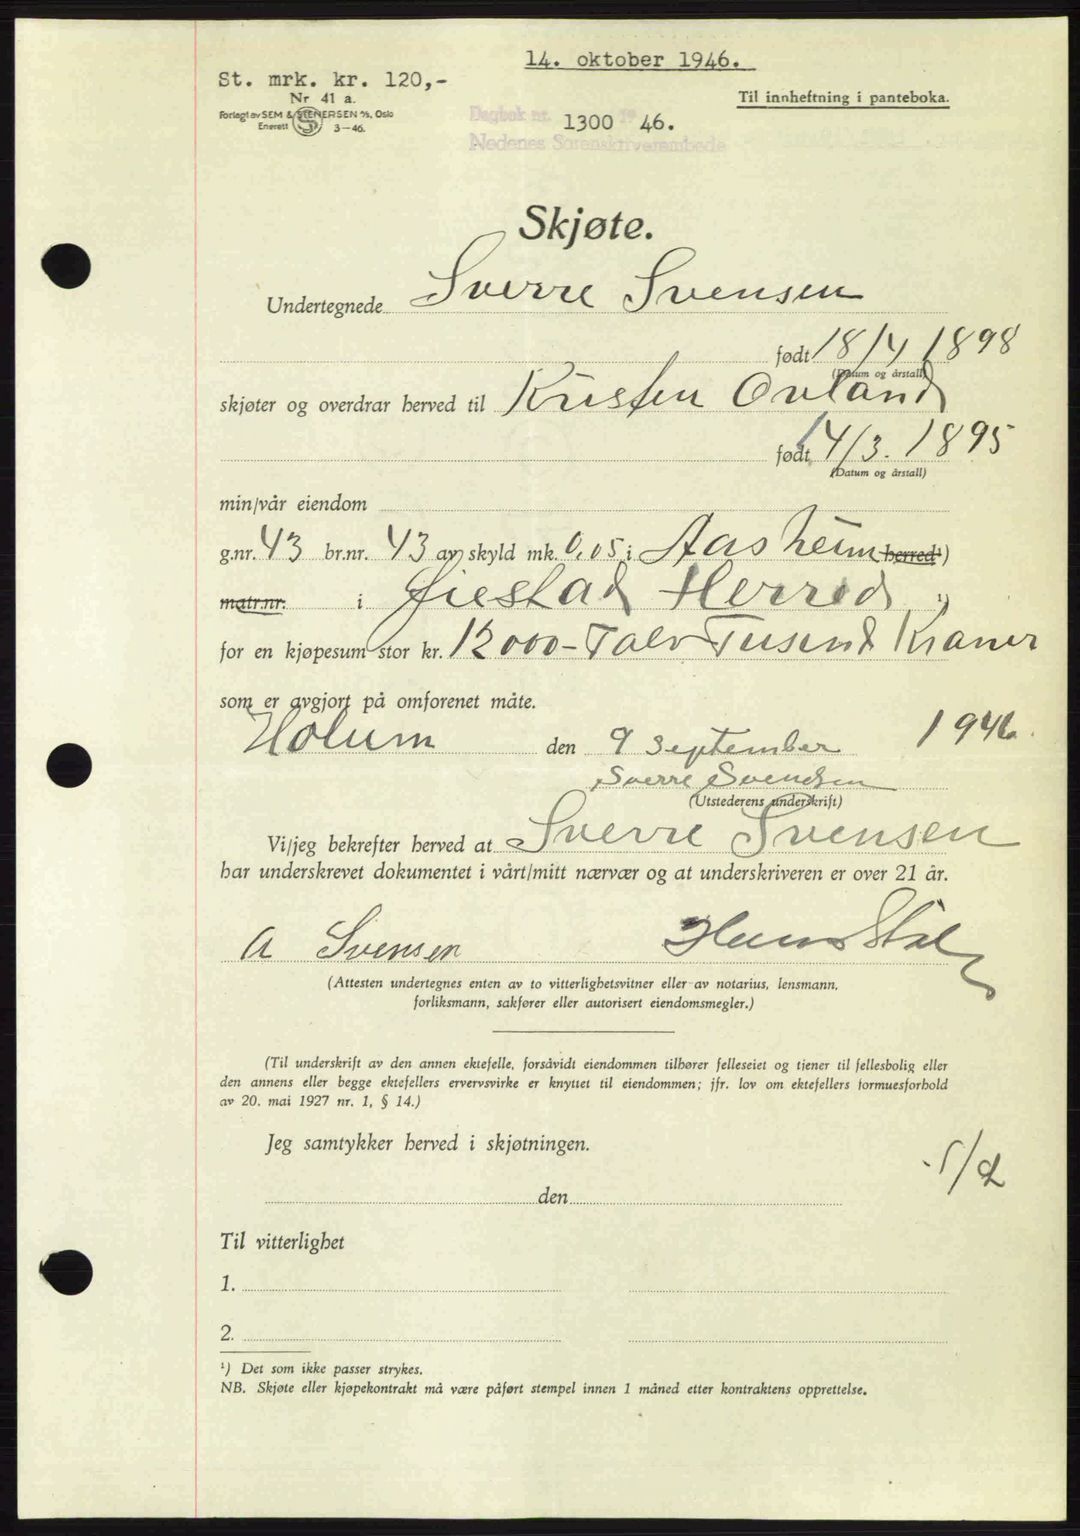 14. oktober 1946.
St. mrk. kr. 120,-
Nr 41 a.
Til innheftning i panteboka.
Forlagt av SEM & STENERSEN A/S, Oslo
Enerett 3-46.
Dagbok nr. 1300 19 46.
Nedenes Sorenskriverembede
Skjøte.
Undertegnede Sverre Svensen
født 18/4 1898
(Datum og årstall)
skjøter og overdrar herved til Kristen Ovland
født 14/3. 1895
(Datum og årstall)
min/vår eiendom
g.nr. 43 br.nr. 43 av skyld mk. 0,05 i Aasheim herred ¹)
matr.nr. i Øiestad Herred ¹)
for en kjøpesum stor kr. 12000- Tolv Tusend Kroner
som er avgjort på omforenet måte.
Holum den 9 September 1946.
Sverre Svendsen
(Utstederens underskrift)
Vi/jeg bekrefter herved at Sverre Svensen
har underskrevet dokumentet i vårt/mitt nærvær og at underskriveren er over 21 år.
A Svensen Hans
(Attesten undertegnes enten av to vitterlighetsvitner eller av notarius, lensmann,
forliksmann, sakfører eller autorisert eiendomsmegler.)
(Til underskrift av den annen ektefelle, forsåvidt eiendommen tilhører felleseiet og tjener til fellesbolig eller
den annens eller begge ektefellers ervervsvirke er knyttet til eiendommen; jfr. lov om ektefellers formuesforhold
av 20. mai 1927 nr. 1, § 14.)
Jeg samtykker herved i skjøtningen.
den
Til vitterlighet
1.
2.
¹) Det som ikke passer strykes.
NB. Skjøte eller kjøpekontrakt må være påført stempel innen 1 måned etter kontraktens opprettelse.